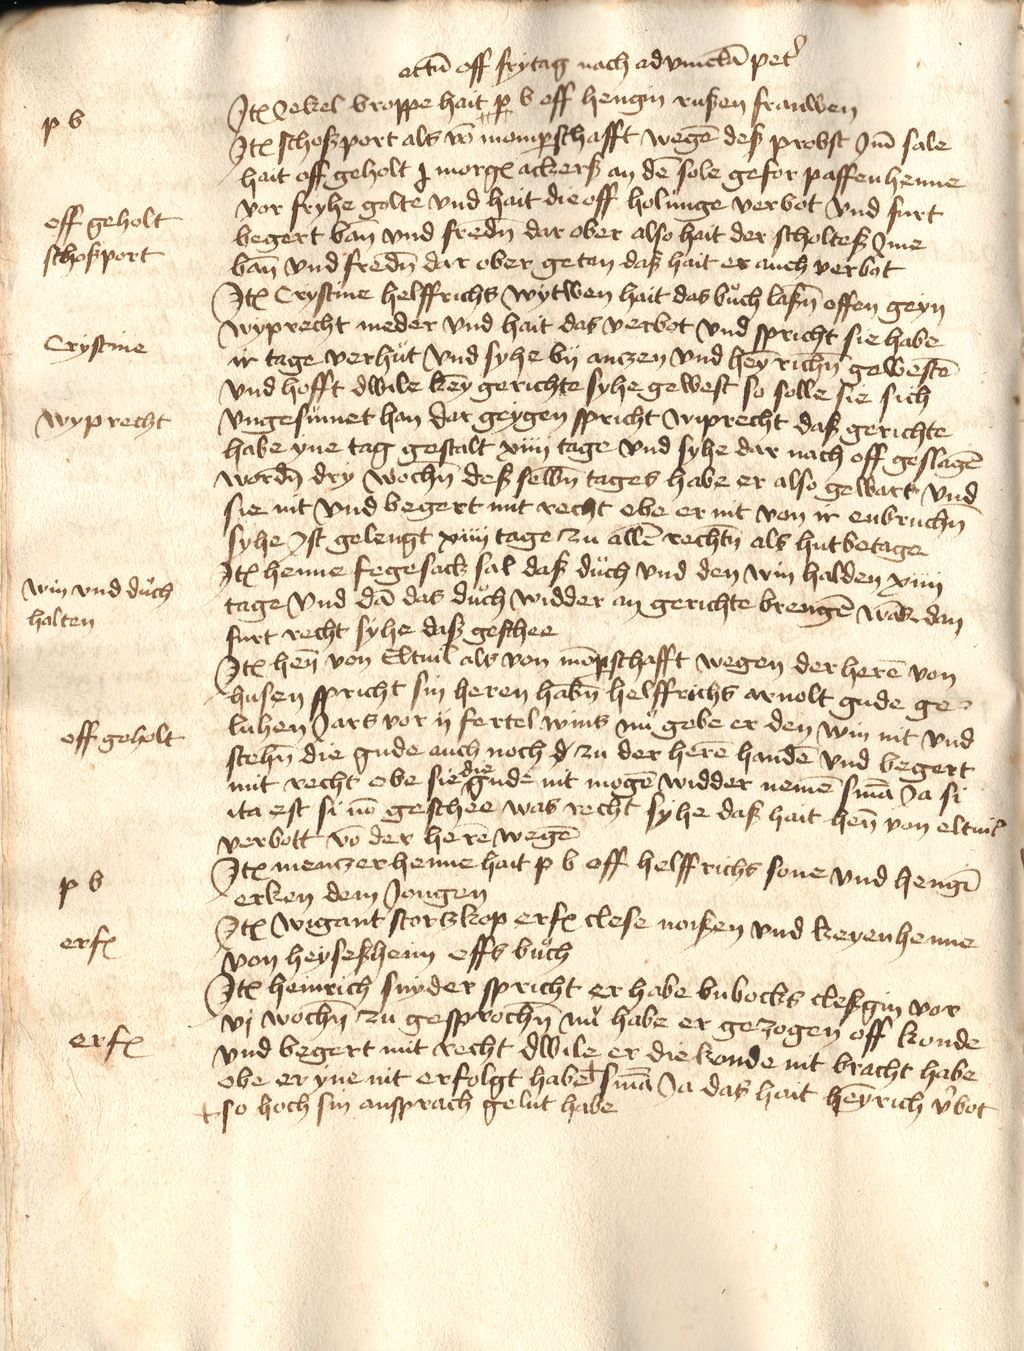 actu off frytag nach ad vincla petr
p b
Itx Jekel Kroppe hait p b off hengin rußen frauwen
Itx schoßport als vo momperschafft wegen deß probst Im sale
hait off geholt j morgx ackerß an de sole gefor paffenhenne
off geholt
vor fryhe golte vnd hait die off holunge verbot vnd furt
schoßport
begert ban vnd freden dar ober also hait der scholteß Ime
ban vnd freden dar ober getan daß hait er auch verbot
Itx Crystine helffrichs wytwen hait das buch laßen offen geyn
Crystine
wyprecht meder vnd hait das verbot vnd spricht sie habe
ir tage verhut vnd syhe by anczen vnd heyrichn geweste
vnd hofft dwile key gerichte syhe gewest so solle sie sich
wyprecht
vngesumet han dar geygen spricht wiprecht daß gerichte
habe yne tag gestalt xiiii tage vnd syhe dar nach off geslage
worden dry wochen deß selben tages habe er also gewart vnd
sie nit vnd begert mit recht obe er nit von ir enbruchn
syhe Ist gelengt xiiii tage zu alle rechtn als hutbetage
win vnd duch
halten
Itx henne fegesack sal daß duch vnd den win halden xiiii
tage vnd da das duch widder an gerichte brenge was dan
furt recht syhe daß geschee
Itx hen von Eltuil als von momperschafft wegen der here von
husen spricht sin heren haben helffrichs arnolt gude ge
off geholt
luhen Jars vor ij fertel wins nu gebe er den win nit vnd
stehn die gude auch noch zu der here hande vnd begert
mit recht obe sie die gude nit moge widder neme sma Ja si
ita est si no geschee was recht syhe daß hait hen von eltuil
verbott vo der here wege
p b
Itx menczerhenne hait p b off helffrichs sone vnd hengi
erken dem Jongen
erfx
Itx wigant stortzkop erfx clese noißen vnd keyenhenne
von heyseßheim effs buch
Itx heinrich snyder spricht er habe bubocks cleßgin vor
erfx
vj wochen zu gesprochen nu habe er gezogen off konde
vnd begert mit recht dwile er die konde nit bracht habe
obe er yne nit erfolgt habe + sma Ja das hait heyrich vbot
+ so hoch sin ansprach gelut habe